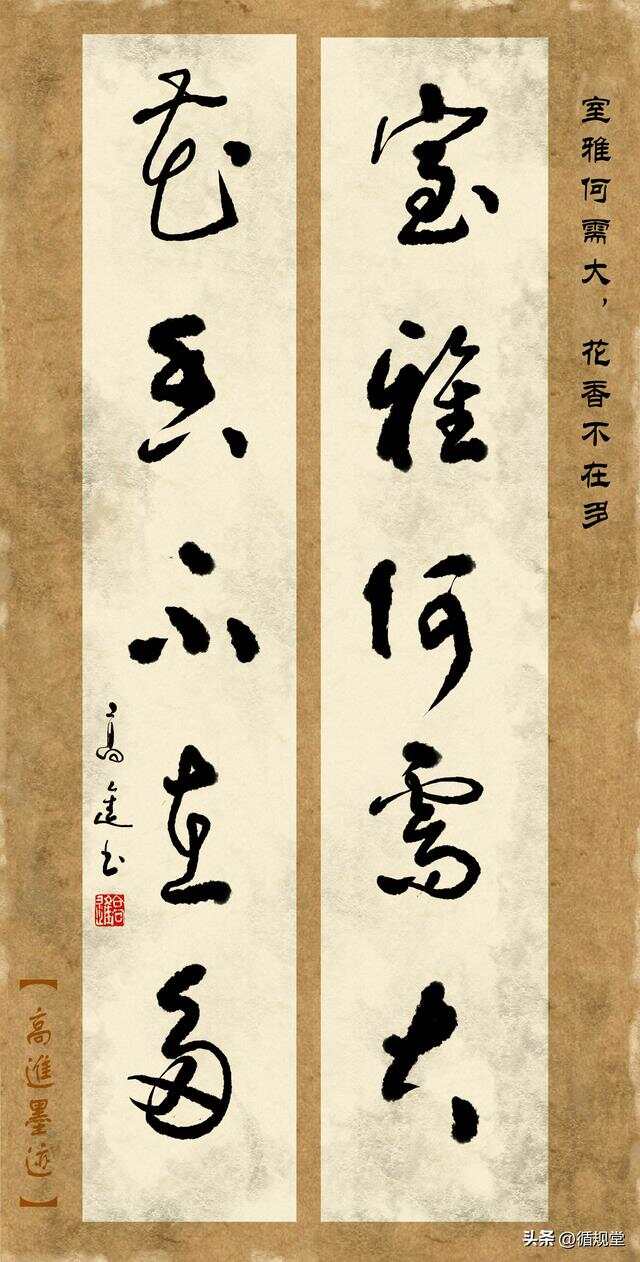 室雅何需大，花香不在多
室雅何需大
花香不在多
高進书
【高進墨迹】
头条 @循规堂